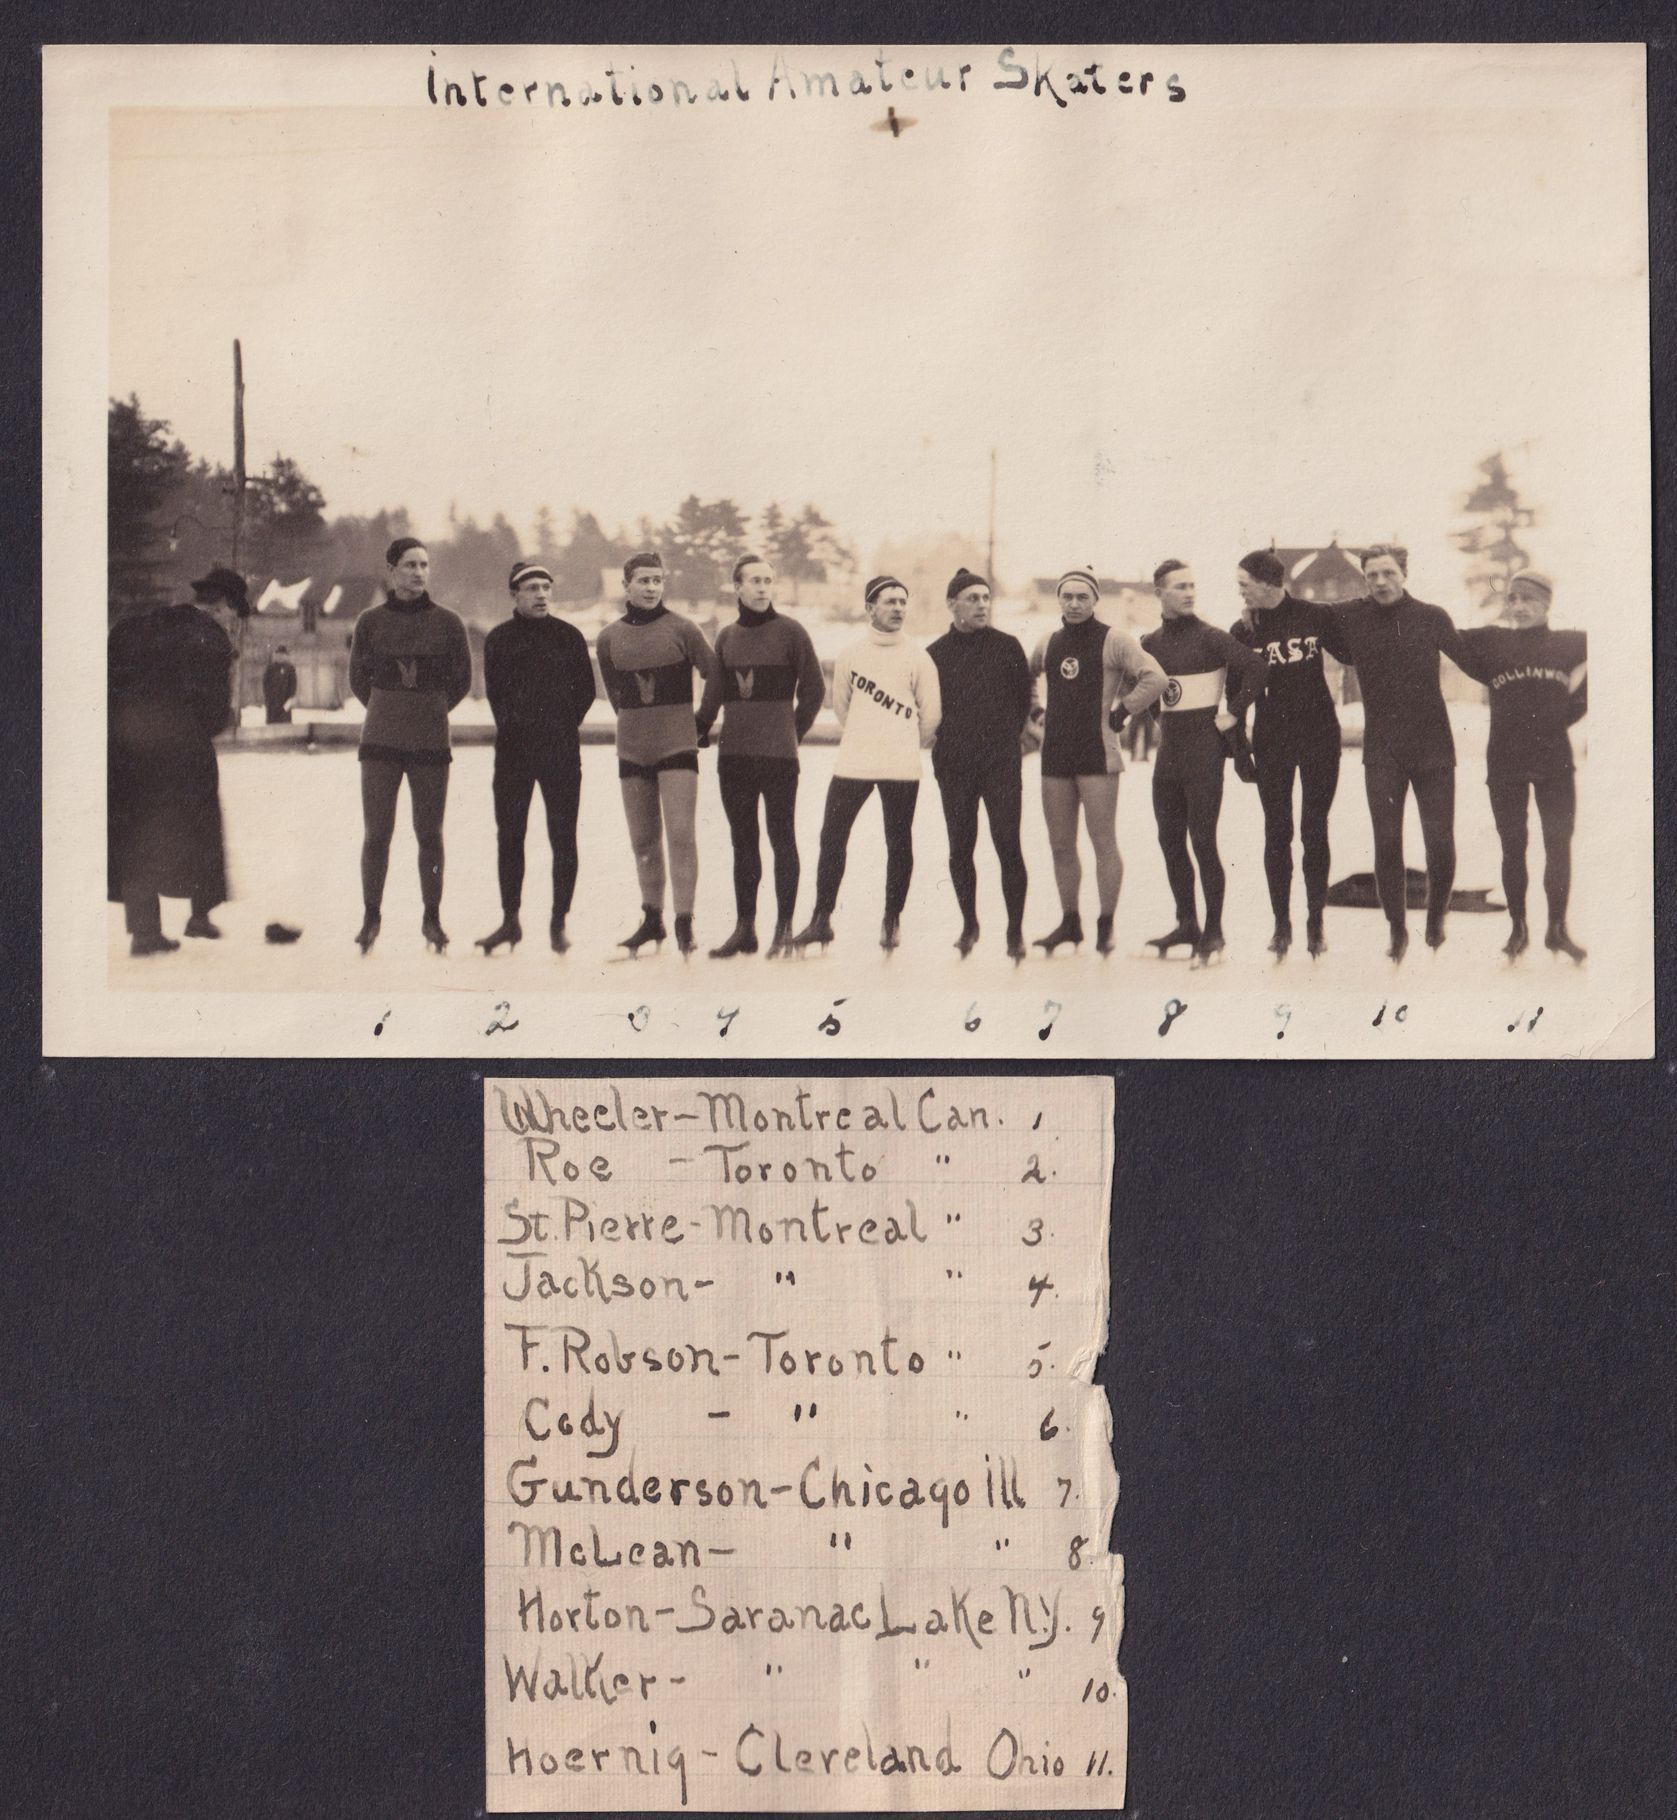 International Amateur Skaters
TORONTO
ASA
COLLINWOO
1 2 3 4 5 6 7 8 9 10 11
Wheeler-Montreal Can. 1.
Roe - Toronto " 2.
St. Pierre-Montreal " 3.
Jackson- " " 4.
F. Robson-Toronto " 5.
Cody - " " 6.
Gunderson-Chicago Ill 7.
McLean- " " 8.
Horton-Saranac Lake N.Y. 9
Walker- " " " 10.
Hoernig-Cleveland Ohio 11.